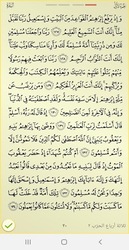 وَإِذْ يَرْفَعُ إِبْرَٰهِـۧمُ ٱلْقَوَاعِدَ مِنَ ٱلْبَيْتِ وَإِسْمَٰعِيلُ رَبَّنَا تَقَبَّلْ
مِنَّآ إِنَّكَ أَنتَ ٱلسَّمِيعُ ٱلْعَلِيمُ ١٢٧ رَبَّنَا وَٱجْعَلْنَا مُسْلِمَيْنِ لَكَ
وَمِن ذُرِّيَّتِنَآ أُمَّةً مُّسْلِمَةً لَّكَ وَأَرِنَا مَنَاسِكَنَا وَتُبْ عَلَيْنَآ
إِنَّكَ أَنتَ ٱلتَّوَّابُ ٱلرَّحِيمُ ١٢٨ رَبَّنَا وَٱبْعَثْ فِيهِمْ رَسُولًا
مِّنْهُمْ يَتْلُوا۟ عَلَيْهِمْ ءَايَٰتِكَ وَيُعَلِّمُهُمُ ٱلْكِتَٰبَ وَٱلْحِكْمَةَ
وَيُزَكِّيهِمْ إِنَّكَ أَنتَ ٱلْعَزِيزُ ٱلْحَكِيمُ ١٢٩ وَمَن يَرْغَبُ عَن مِّلَّةِ
إِبْرَٰهِـۧمَ إِلَّا مَن سَفِهَ نَفْسَهُۥ وَلَقَدِ ٱصْطَفَيْنَٰهُ فِى ٱلدُّنْيَا
وَإِنَّهُۥ فِى ٱلْءَاخِرَةِ لَمِنَ ٱلصَّٰلِحِينَ ١٣٠ إِذْ قَالَ لَهُۥ رَبُّهُۥٓ أَسْلِمْ
قَالَ أَسْلَمْتُ لِرَبِّ ٱلْعَٰلَمِينَ ١٣١ وَوَصَّىٰ بِهَآ إِبْرَٰهِـۧمُ بَنِيهِ
وَيَعْقُوبُ يَٰبَنِىَّ إِنَّ ٱللَّهَ ٱصْطَفَىٰ لَكُمُ ٱلدِّينَ فَلَا تَمُوتُنَّ إِلَّا
وَأَنتُم مُّسْلِمُونَ ١٣٢ أَمْ كُنتُمْ شُهَدَآءَ إِذْ حَضَرَ يَعْقُوبَ ٱلْمَوْتُ
إِذْ قَالَ لِبَنِيهِ مَا تَعْبُدُونَ مِنۢ بَعْدِى قَالُوا۟ نَعْبُدُ إِلَٰهَكَ
وَإِلَٰهَ ءَابَآئِكَ إِبْرَٰهِـۧمَ وَإِسْمَٰعِيلَ وَإِسْحَٰقَ إِلَٰهًا
وَٰحِدًا وَنَحْنُ لَهُۥ مُسْلِمُونَ ١٣٣ تِلْكَ أُمَّةٌ قَدْ خَلَتْ لَهَا مَا
كَسَبَتْ وَلَكُم مَّا كَسَبْتُمْ وَلَا تُسْـَٔلُونَ عَمَّا كَانُوا۟ يَعْمَلُونَ ١٣٤
ثلاثة أرباع الحزب ٢ ٢٠